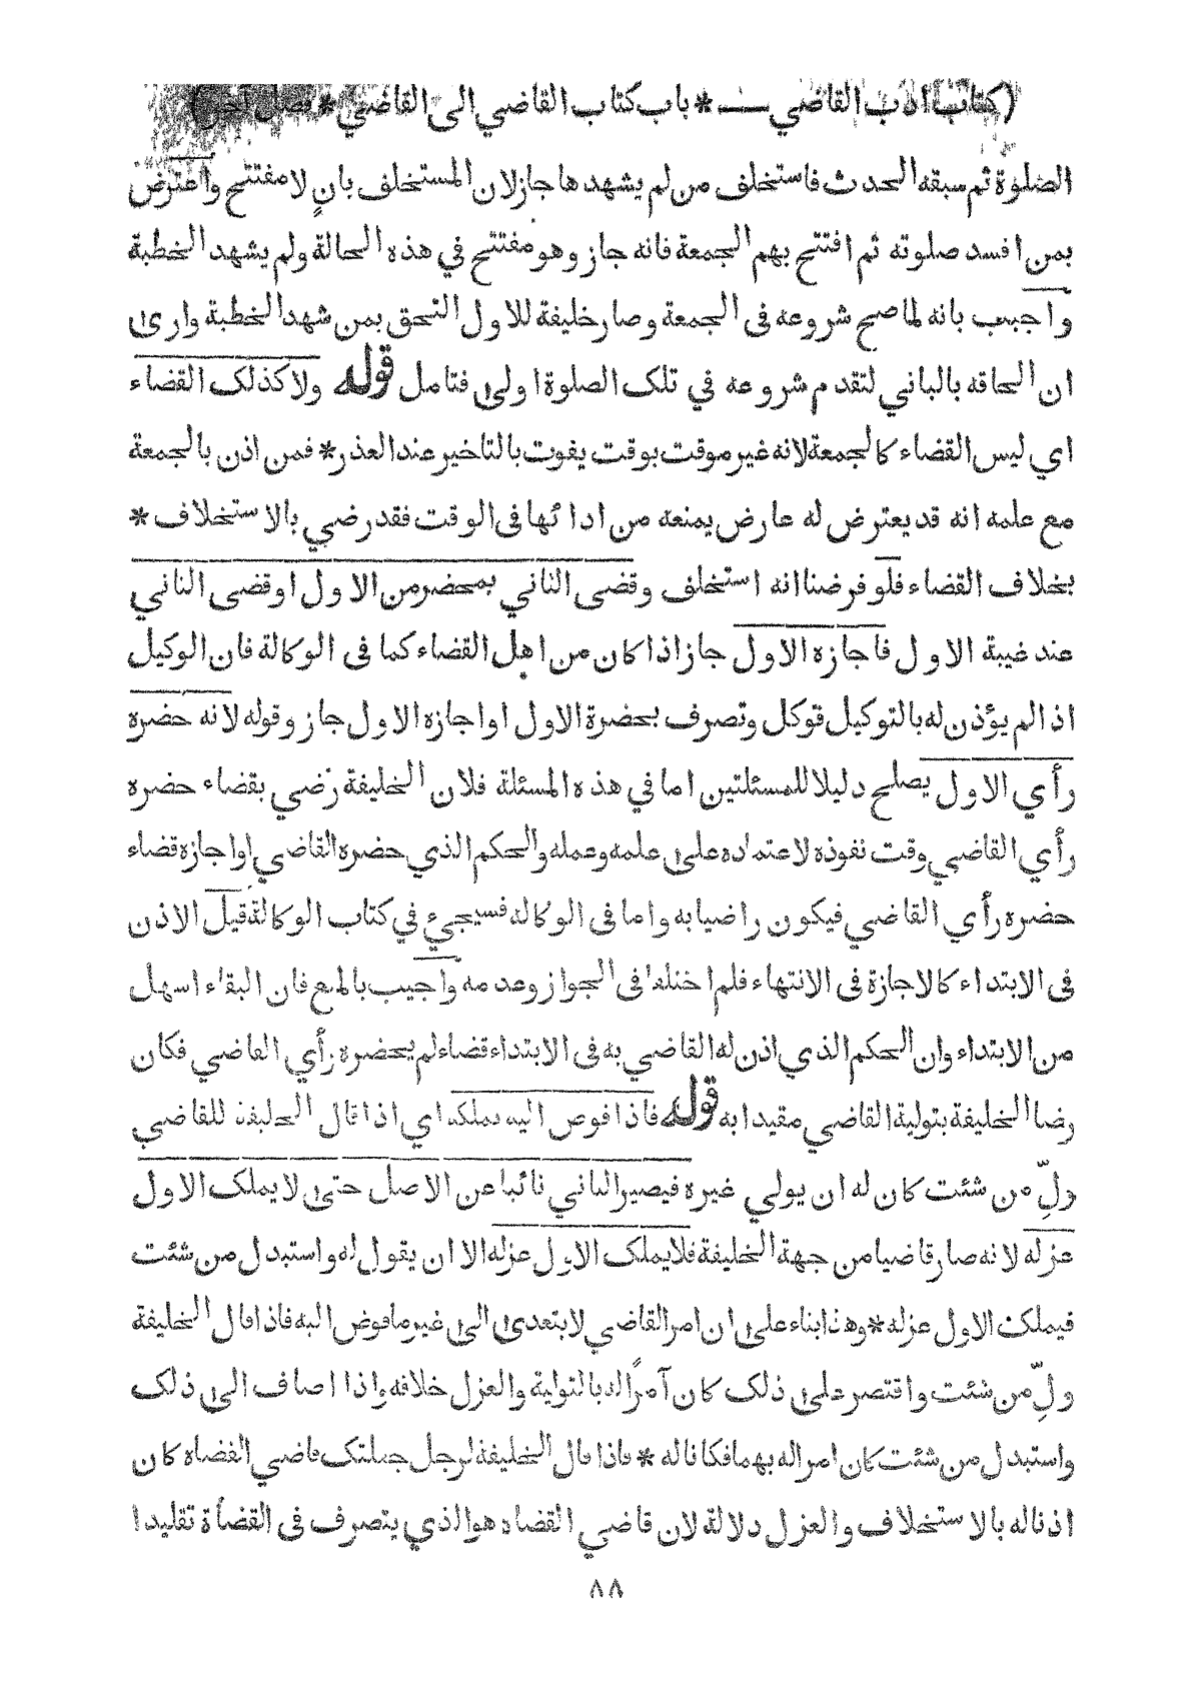 (كتاب ادب القاضي — * باب كتاب القاضي الى القاضي * فصل آخر)
الصلوة ثم سبقه الحدث فاستخلف من لم يشهدها جاز لان المستخلف بانٍ لا مفتتح واعترض
بمن افسد صلوته ثم افتتح بهم الجمعة فانه جاز وهو مفتتح في هذه الحالة ولم يشهد الخطبة
واجيب بانه لما صح شروعه فى الجمعة وصار خليفة للاول التحق بمن شهد الخطبة وارى
ان الحاقه بالباني لتقدم شروعه في تلك الصلوة اولى فتامل قوله ولا كذلك القضاء
اي ليس القضاء كالجمعة لانه غير موقت بوقت يفوت بالتاخير عند العذر * فمن اذن بالجمعة
مع علمه انه قد يعترض له عارض يمنعه من ادائها فى الوقت فقد رضي بالاستخلاف *
بخلاف القضاء فلو فرضنا انه استخلف وقضى الثاني بمحضر من الاول او قضى الثاني
عند غيبة الاول فاجازه الاول جاز اذا كان من اهل القضاء كما فى الوكالة فان الوكيل
اذا لم يؤذن له بالتوكيل فوكل وتصرف بحضرة الاول او اجازه الاول جاز وقوله لانه حضره
رأي الاول يصلح دليلا للمسئلتين اما في هذه المسئلة فلان الخليفة رضي بقضاء حضره
رأي القاضي وقت نفوذه لاعتماده على علمه وعمله والحكم الذي حضره القاضي او اجازه قضاء
حضره رأي القاضي فيكون راضيا به واما فى الوكالة فسيجيء في كتاب الوكالة قيل الاذن
فى الابتداء كالاجازة فى الانتهاء فلم اختلفا فى الجواز وعدمه واجيب بالمنع فان البقاء اسهل
من الابتداء وان الحكم الذي اذن له القاضي به فى الابتداء قضاء لم يحضره رأي القاضي فكان
رضا الخليفة بتولية القاضي مقيدا به قوله فاذا فوض اليه يملكه اي اذا قال الخليفة للقاضي
ولِّ من شئت كان له ان يولي غيره فيصير الثاني نائبا عن الاصل حتى لا يملك الاول
عزله لانه صار قاضيا من جهة الخليفة فلا يملك الاول عزله الا ان يقول له واستبدل من شئت
فيملك الاول عزله * وهذا بناء على ان امر القاضي لا يتعدى الى غير ما فوض اليه فاذا قال الخليفة
ولِّ من شئت واقتصر على ذلك كان آمرًا له بالتولية والعزل خلافه واذا اضاف الى ذلك
واستبدل من شئت كان امرا له بهما فكانا له * فاذا قال الخليفة لرجل جعلتك قاضي القضاه كان
اذنا له بالاستخلاف والعزل دلالة لان قاضي القضاه هو الذي يتصرف فى القضأة تقليدا
٨٨